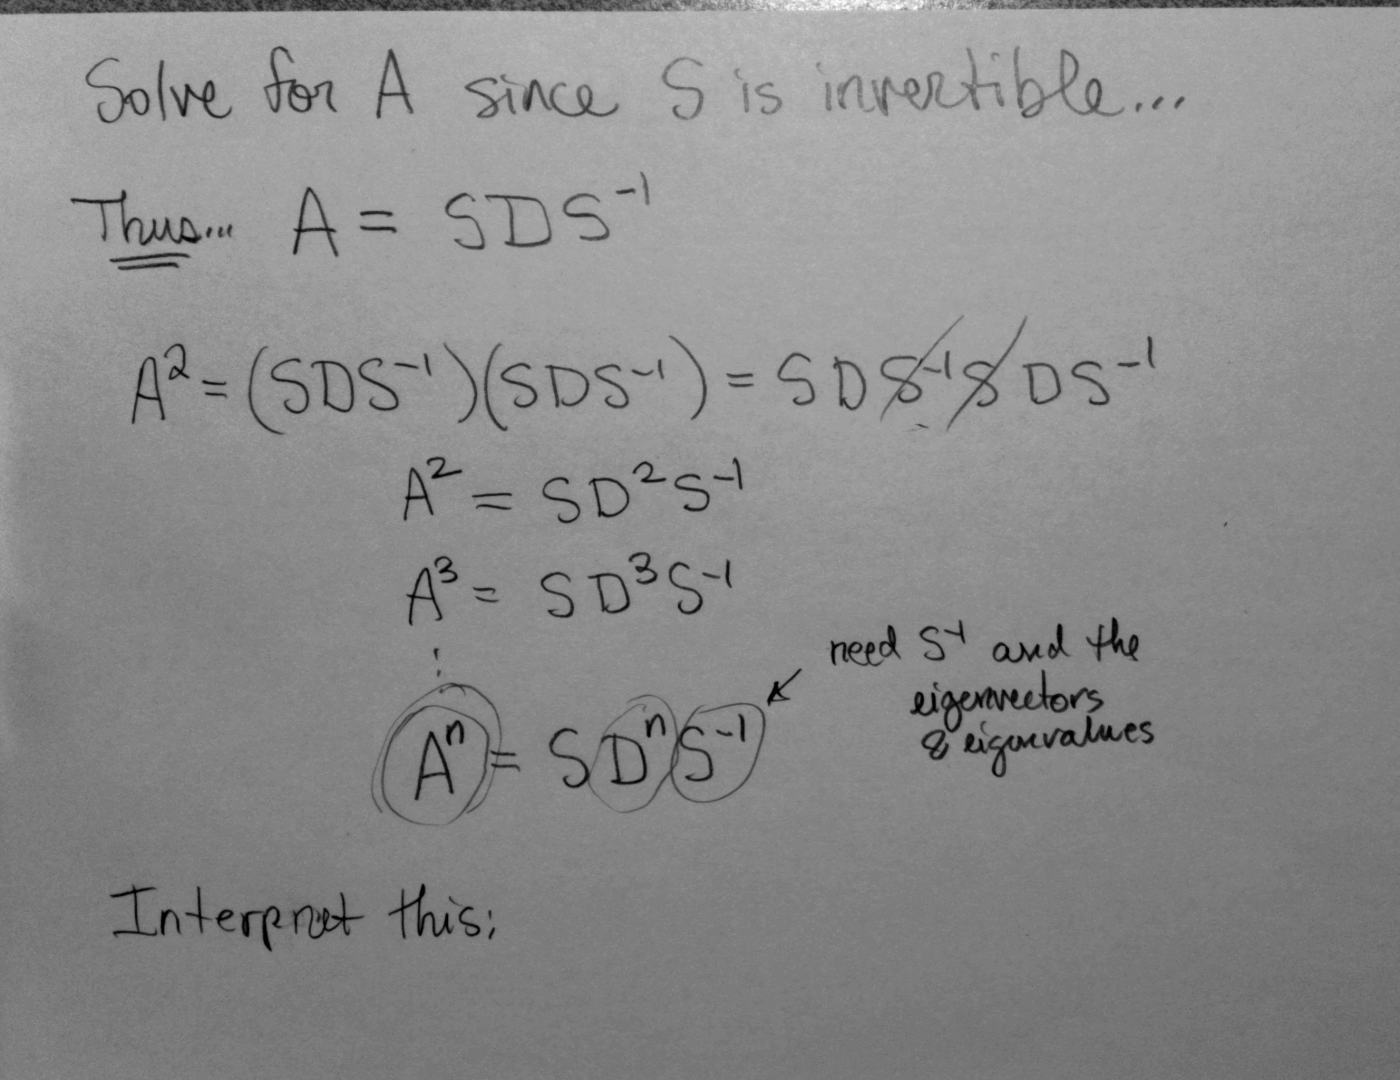 Solve for A since S is invertible...
Thus... A = SDS⁻¹
A² = (SDS⁻¹)(SDS⁻¹) = SDS⁻¹SDS⁻¹
A² = SD²S⁻¹
A³ = SD³S⁻¹
⋮
need S⁻¹ and the
eigenvectors
& eigenvalues
Aⁿ = SDⁿS⁻¹
Interpret this: